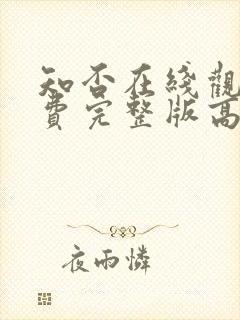 知否在綫觀
費完整版高
夜雨憐